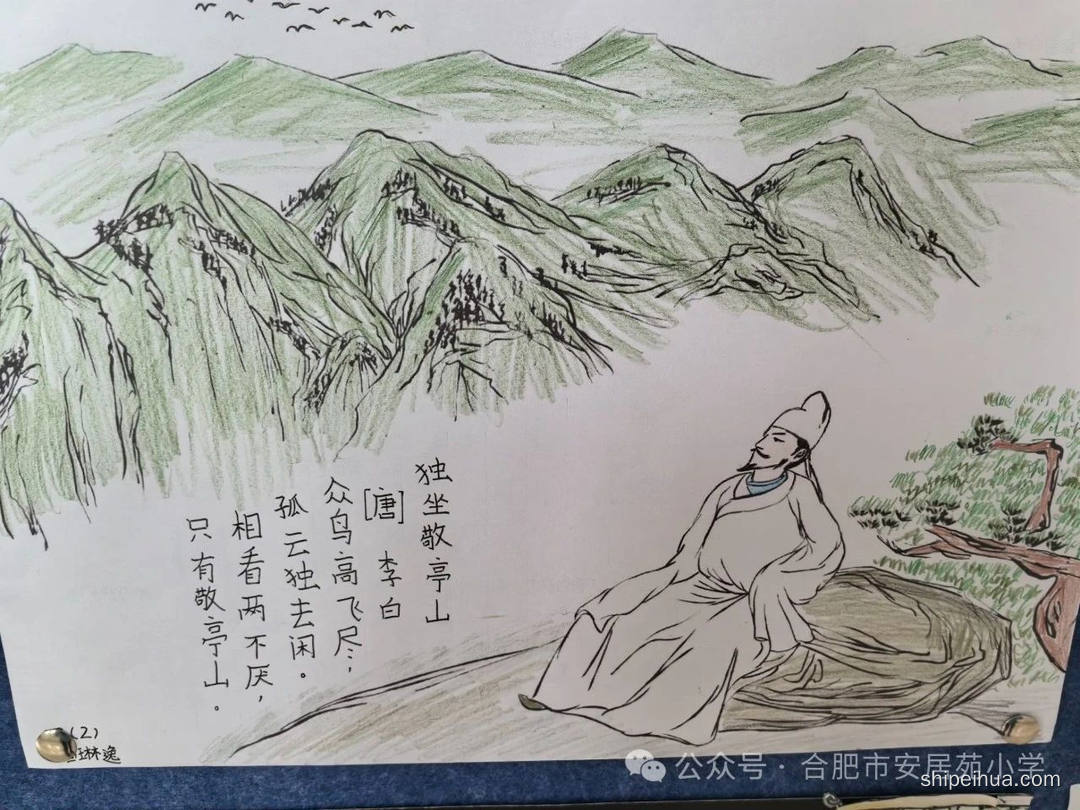 独坐敬亭山
[唐] 李白
众鸟高飞尽，
孤云独去闲。
相看两不厌，
只有敬亭山。
(2)
林逸
公众号·合肥市安居苑小学
shipeihua.com